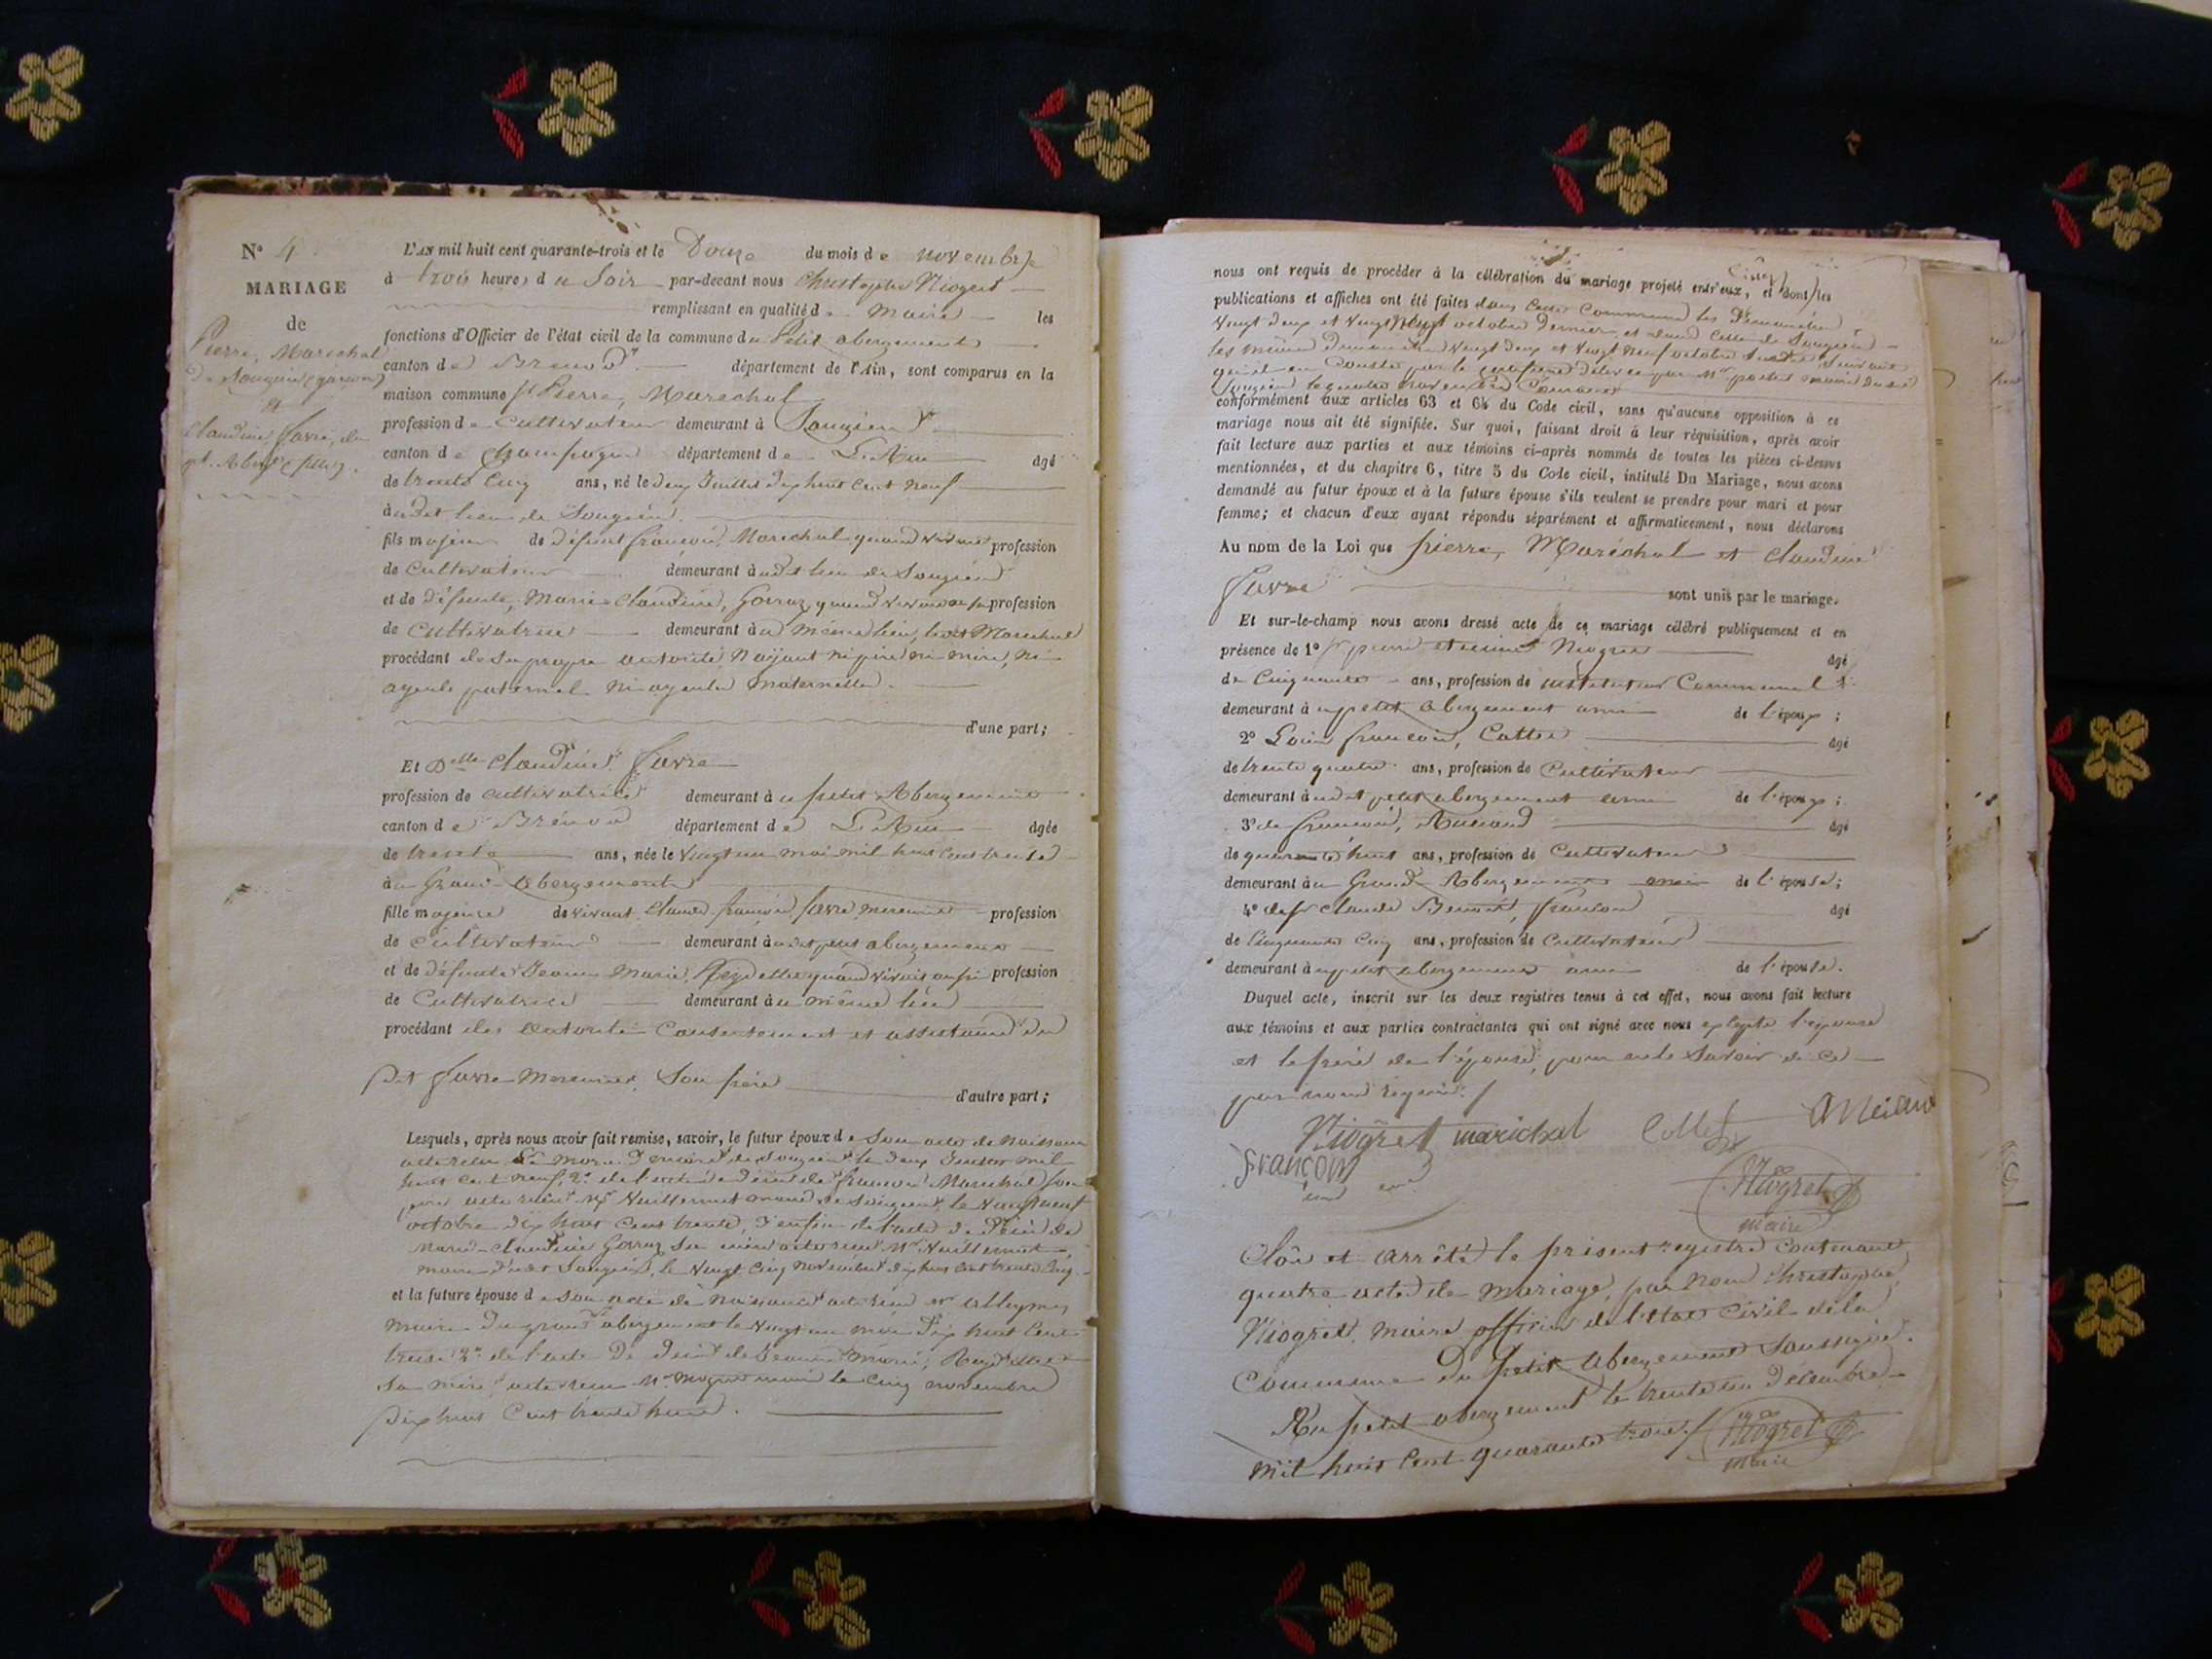 N° 4
MARIAGE
de
Pierre, Marechal
de Songieu (garçon)
et
Claudine favre, du
pt. Aberg.t (fille).
L'AN mil huit cent quarante-trois et le Douze du mois de novembre
à trois heures du Soir par-devant nous Christophe Niogret
remplissant en qualité de maire les
fonctions d'Officier de l'état civil de la commune du Petit abergement
canton de Brenod département de l'Ain, sont comparus en la
maison commune sr Pierre, Marechal
profession de Cultivateur demeurant à Songieu
canton de Champagne département de L'Ain âgé
de trente Cinq ans, né le deux Juillet dix huit Cent Neuf
audit lieu de Songieu.
fils majeur de défunt françois, Marechal quand vivait profession
de Cultivateur demeurant audit lieu de Songieu
et de défunte, Marie Claudine, Gorraz, quand vivait aussi profession
de Cultivatrice demeurant au même lieu, ledit Marechal
procédant de sa propre autorité, N'ayant ni père ni mère, ni
ayeuls paternel ni ayeules maternelles.
d'une part;
Et Delle Claudine favre
profession de cultivatrice demeurant au petit Abergement
canton de Brénod département de L'Ain âgée
de trente ans, née le vingt un mai mil huit cent treize
au Grand Abergement
fille majeure de vivant Claude françois favre mercunier profession
de Cultivateur demeurant audit petit abergement
et de défunte Jeanne Marie, Reydellet quand vivait aussi profession
de Cultivatrice demeurant au même lieu
procédant de l'autorité Consentement et assistance du
Dit favre Mercunier, Son père
d'autre part;
Lesquels, après nous avoir fait remise, savoir, le futur époux de Son acte de Naissance
huit Cent neuf, 2° de l'acte de décès de françois Marechal son
père acte reçu Mr Vuillermet maire de Songieu, le vingt neuf
octobre dix huit Cent trente, 3° enfin de l'acte de Décès de
Marie-Claudine Gorraz Sa mère acte reçu Mr Vuillermet
maire dudit Songieu, le Vingt Cinq novembre dix huit Cent trente Cinq.
et la future épouse de son acte de Naissance acte reçu Mr
maire du grand abergement le Vingt un mai Dix huit Cent
treize 2° de l'acte De décès de Jeanne Marie, Reydellet
Sa mère, acte reçu Mr Niogret maire le Cinq novembre
Dix huit Cent trente huit.
nous ont requis de procéder à la célébration du mariage projeté entr'eux, et dont les
publications et affiches ont été faites dans Cette Commune les Dimanches
Vingt deux et Vingt Neuf octobre Dernier, et dans Celle de Songieu
les mêmes dimanches Vingt deux et Vingt Neuf octobre
Songieu le quatre novembre Courant
conformément aux articles 63 et 64 du Code civil, sans qu'aucune opposition à ce
mariage nous ait été signifiée. Sur quoi, faisant droit à leur réquisition, après avoir
fait lecture aux parties et aux témoins ci-après nommés de toutes les pièces ci-dessus
mentionnées, et du chapitre 6, titre 5 du Code civil, intitulé Du Mariage, nous avons
demandé au futur époux et à la future épouse s'ils veulent se prendre pour mari et pour
femme; et chacun d'eux ayant répondu séparément et affirmativement, nous déclarons
Au nom de la Loi que pierre, Maréchal et Claudine
favre sont unis par le mariage.
Et sur-le-champ nous avons dressé acte de ce mariage célébré publiquement et en
présence de 1° Sr pierre Niogret âgé
de Cinquante ans, profession de instituteur Communal
demeurant au petit abergement ami de l'époux;
2° Louis françois, Collet âgé
de trente quatre ans, profession de Cultivateur
demeurant audit petit abergement ami de l'époux;
3° de françois, Anciand âgé
de quarante huit ans, profession de Cultivateur
demeurant au Grand Abergement ami de l'épouse;
4° de sr Claude Benoit, françon âgé
de Cinquante Cinq ans, profession de Cultivateur
demeurant au petit abergement ami de l'épouse.
Duquel acte, inscrit sur les deux registres tenus à cet effet, nous avons fait lecture
aux témoins et aux parties contractantes qui ont signé avec nous excepté l'épouse
et le père de l'épouse, pour ne le Savoir de Ce
par nous requis.
Niogret marichal Collet
françon
Niogret
maire
Clôs et arrêté le présent registre Contenant
quatre actes de mariage, par Nous Christophe,
Niogret, maire officier de l'état Civil de la
Commune Du petit abergement Soussigné.
Au petit abergement le trente un Décembre
mil huit Cent quarante trois.
Niogret
maire